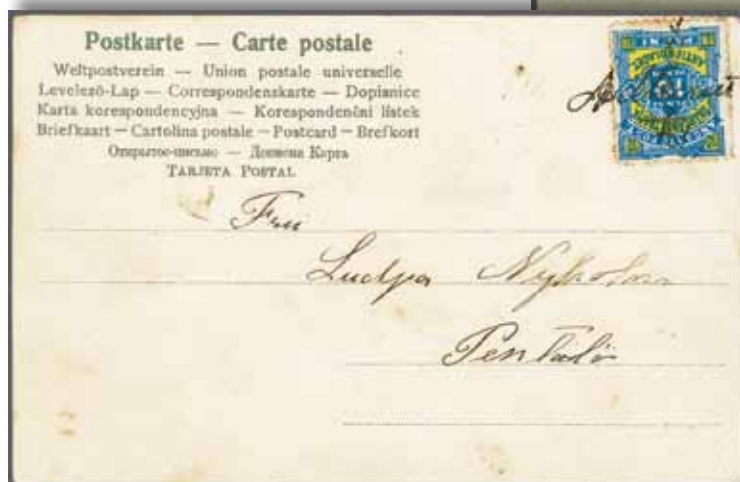 Postkarte — Carte postale
Weltpostverein — Union postale universelle
Levelező-Lap — Correspondenskarte — Dopisnice
Karta korespondencyjna — Korespondenční lístek
Briefkaart — Cartolina postale — Postcard — Brefkort
Открытое письмо — Дописна Карта
TARJETA POSTAL
Fru
Nyholm
Pentälä